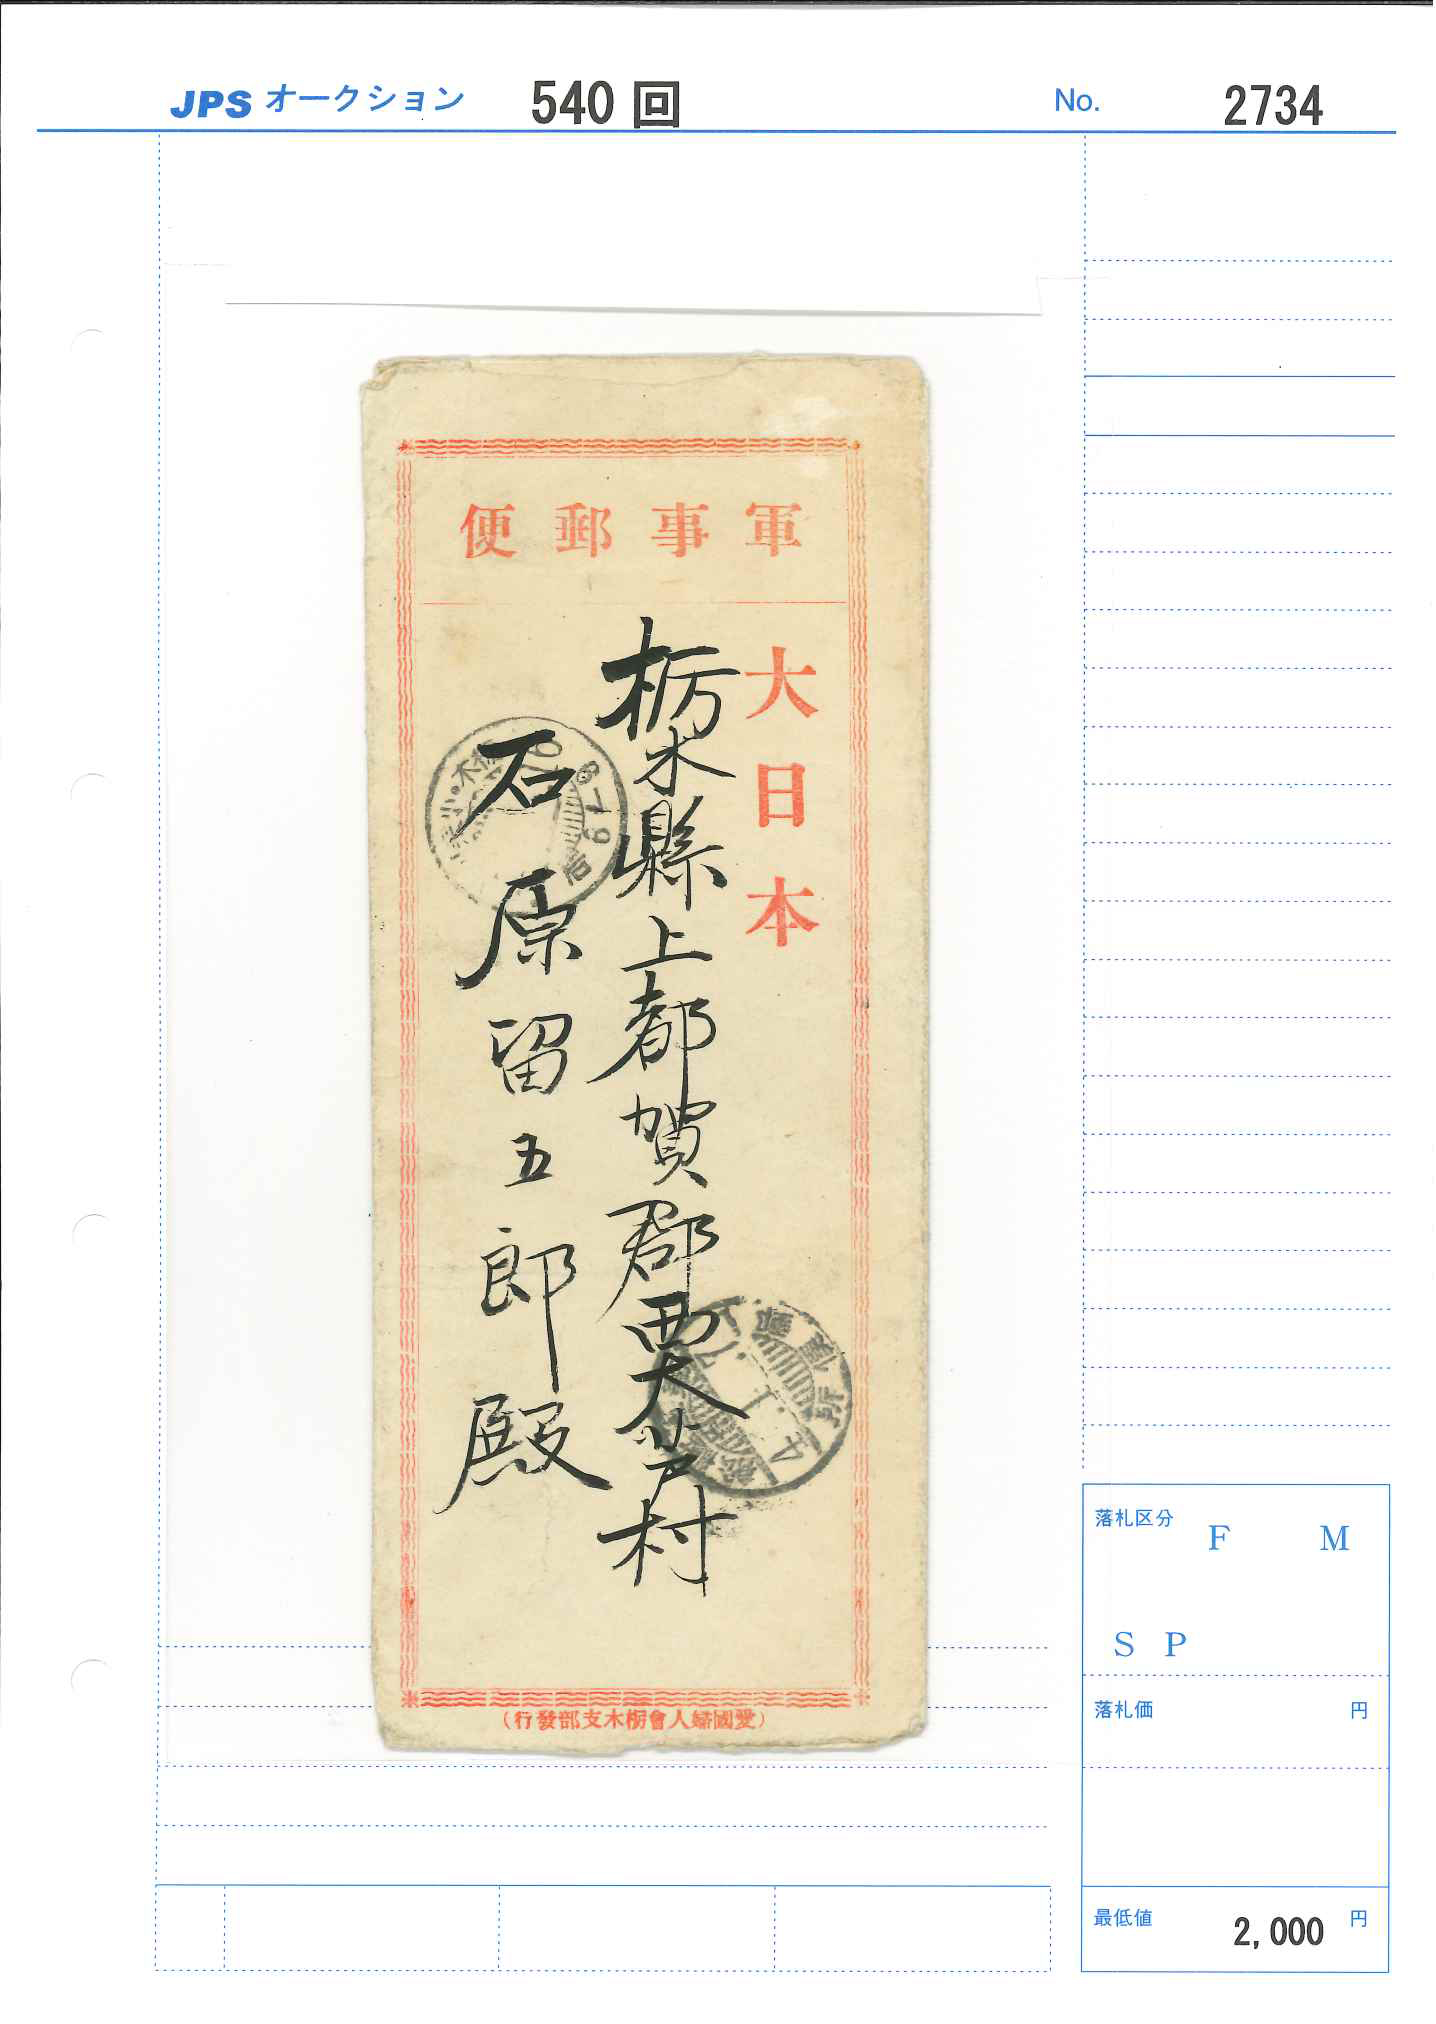 JPS オークション 540 回 No. 2734
軍事郵便
大日本
栃木縣上都賀郡粟野村
石原留五郎殿
8-7-9
4
(愛國婦人會栃木支部發行)
落札区分 F M
S P
落札価 円
最低値 2,000 円